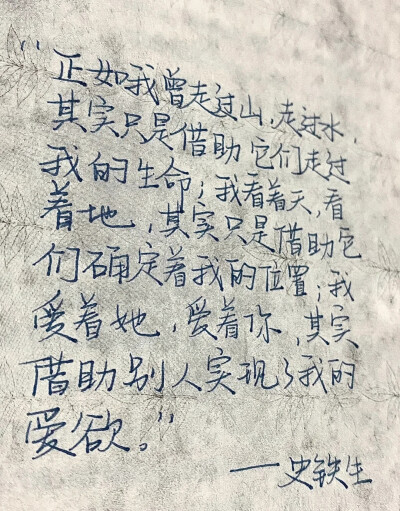 “正如我曾走过山，走过水，
其实只是借助它们走过
我的生命；我看着天，看
着地，其实只是借助它
们确定着我的位置；我
爱着她，爱着你，其实
借助别人实现了我的
爱欲。”
——史铁生